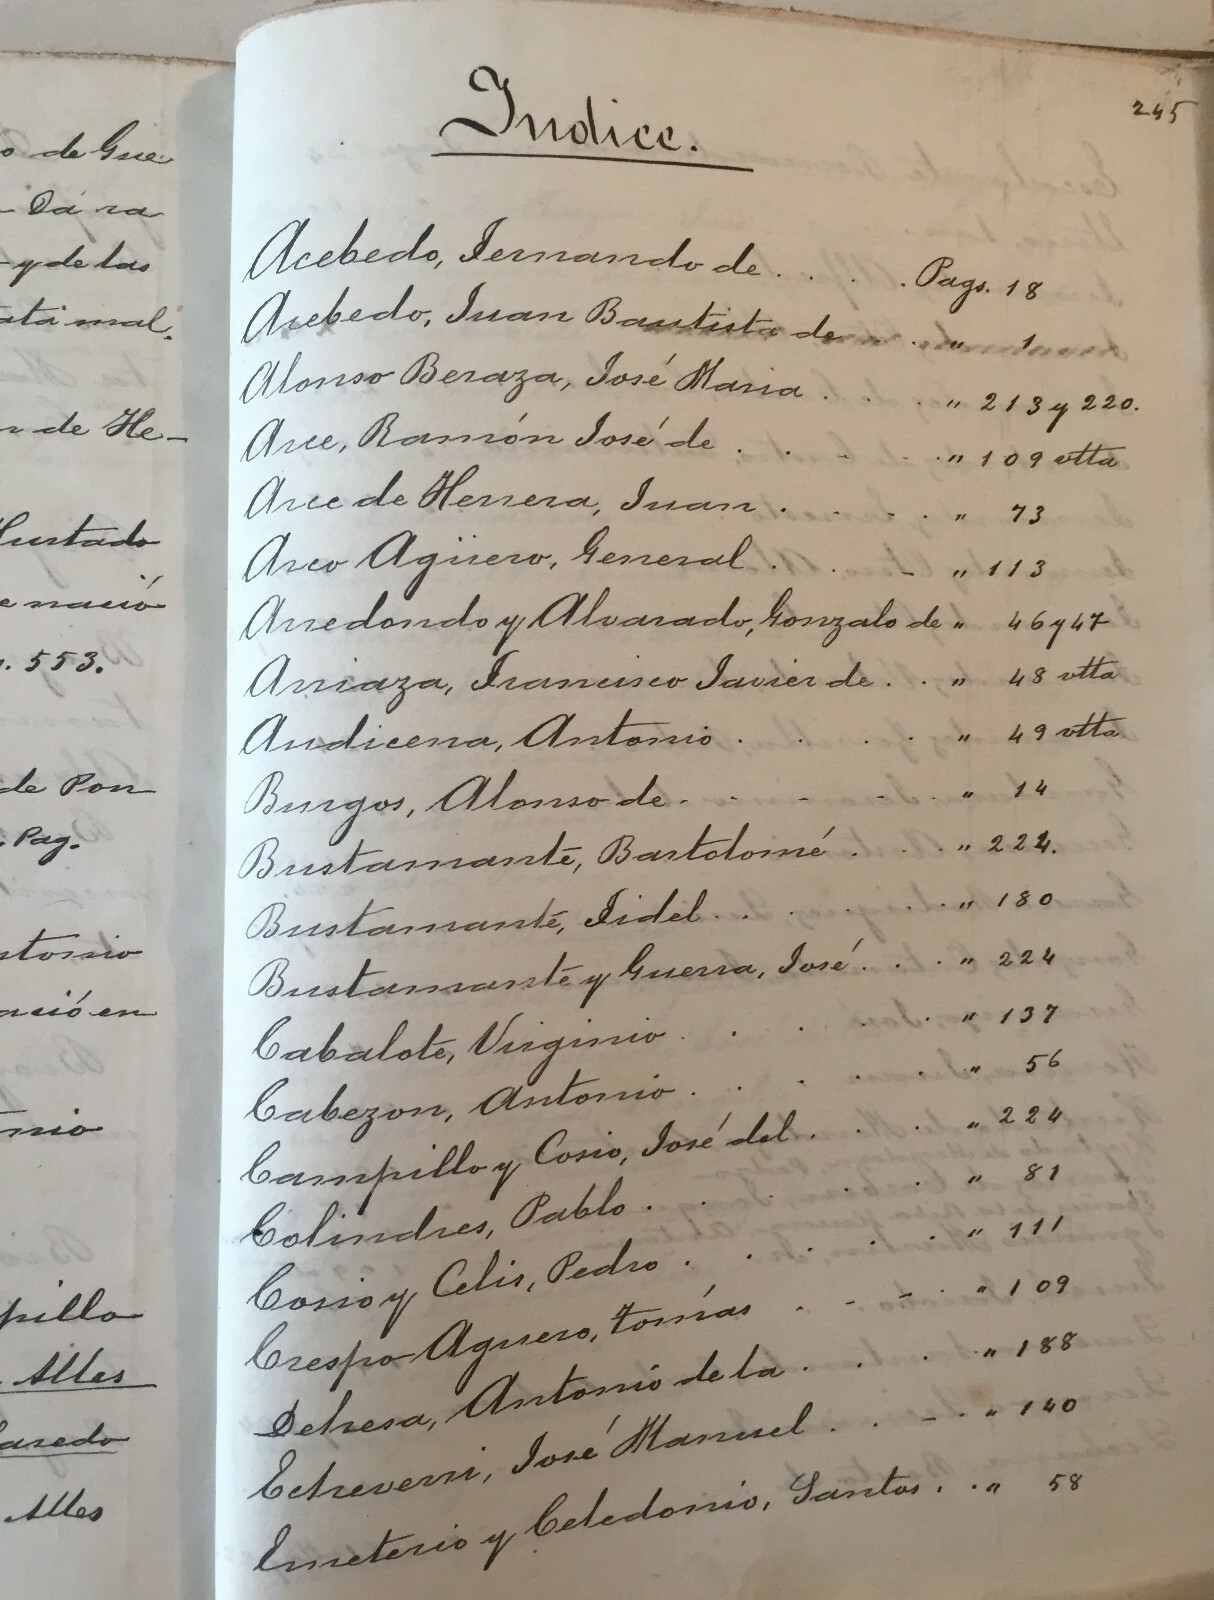 de Gue
Dá ra
y de las
ata mal.
n de He-
Hurtado
e nació
. 553.
de Pon
. Pag.
ntonio
ació en
onio
pillo
Alles
Laredo
Alles
245
Indice.
Acebedo, Fernando de . . . . Pags. 18
Acebedo, Juan Bautista de . . " 1
Alonso Beraza, José Maria . . . " 213 y 220.
Arce, Ramón José de . . - . . " 109 vtta
Arce de Herrera, Juan . . . . " 73
Arco Agüero, General . . . - " 113
Arredondo y Alvarado, Gonzalo de " 46 y 47
Arriaza, Francisco Javier de . . " 48 vtta
Audicena, Antonio . . . . " 49 vtta
Burgos, Alonso de - - - - - " 14
Bustamante, Bartolomé . . . " 224.
Bustamante, Fidel . . . . . " 180
Bustamante y Guerra, José . . . " 224
Cabalote, Virginio . . . . . " 137
Cabezon, Antonio . . . . . " 56
Campillo y Cosio, José del . . . " 224
Colindres, Pablo . . . . . " 81
Cosio y Celis, Pedro . . . . . " 111
Crespo Aguero, Tomás . - - . " 109
Dehesa, Antonio de la . . . " 188
Echeverri, José Manuel . . - . " 140
Emeterio y Celedonio, Santos . . " 58